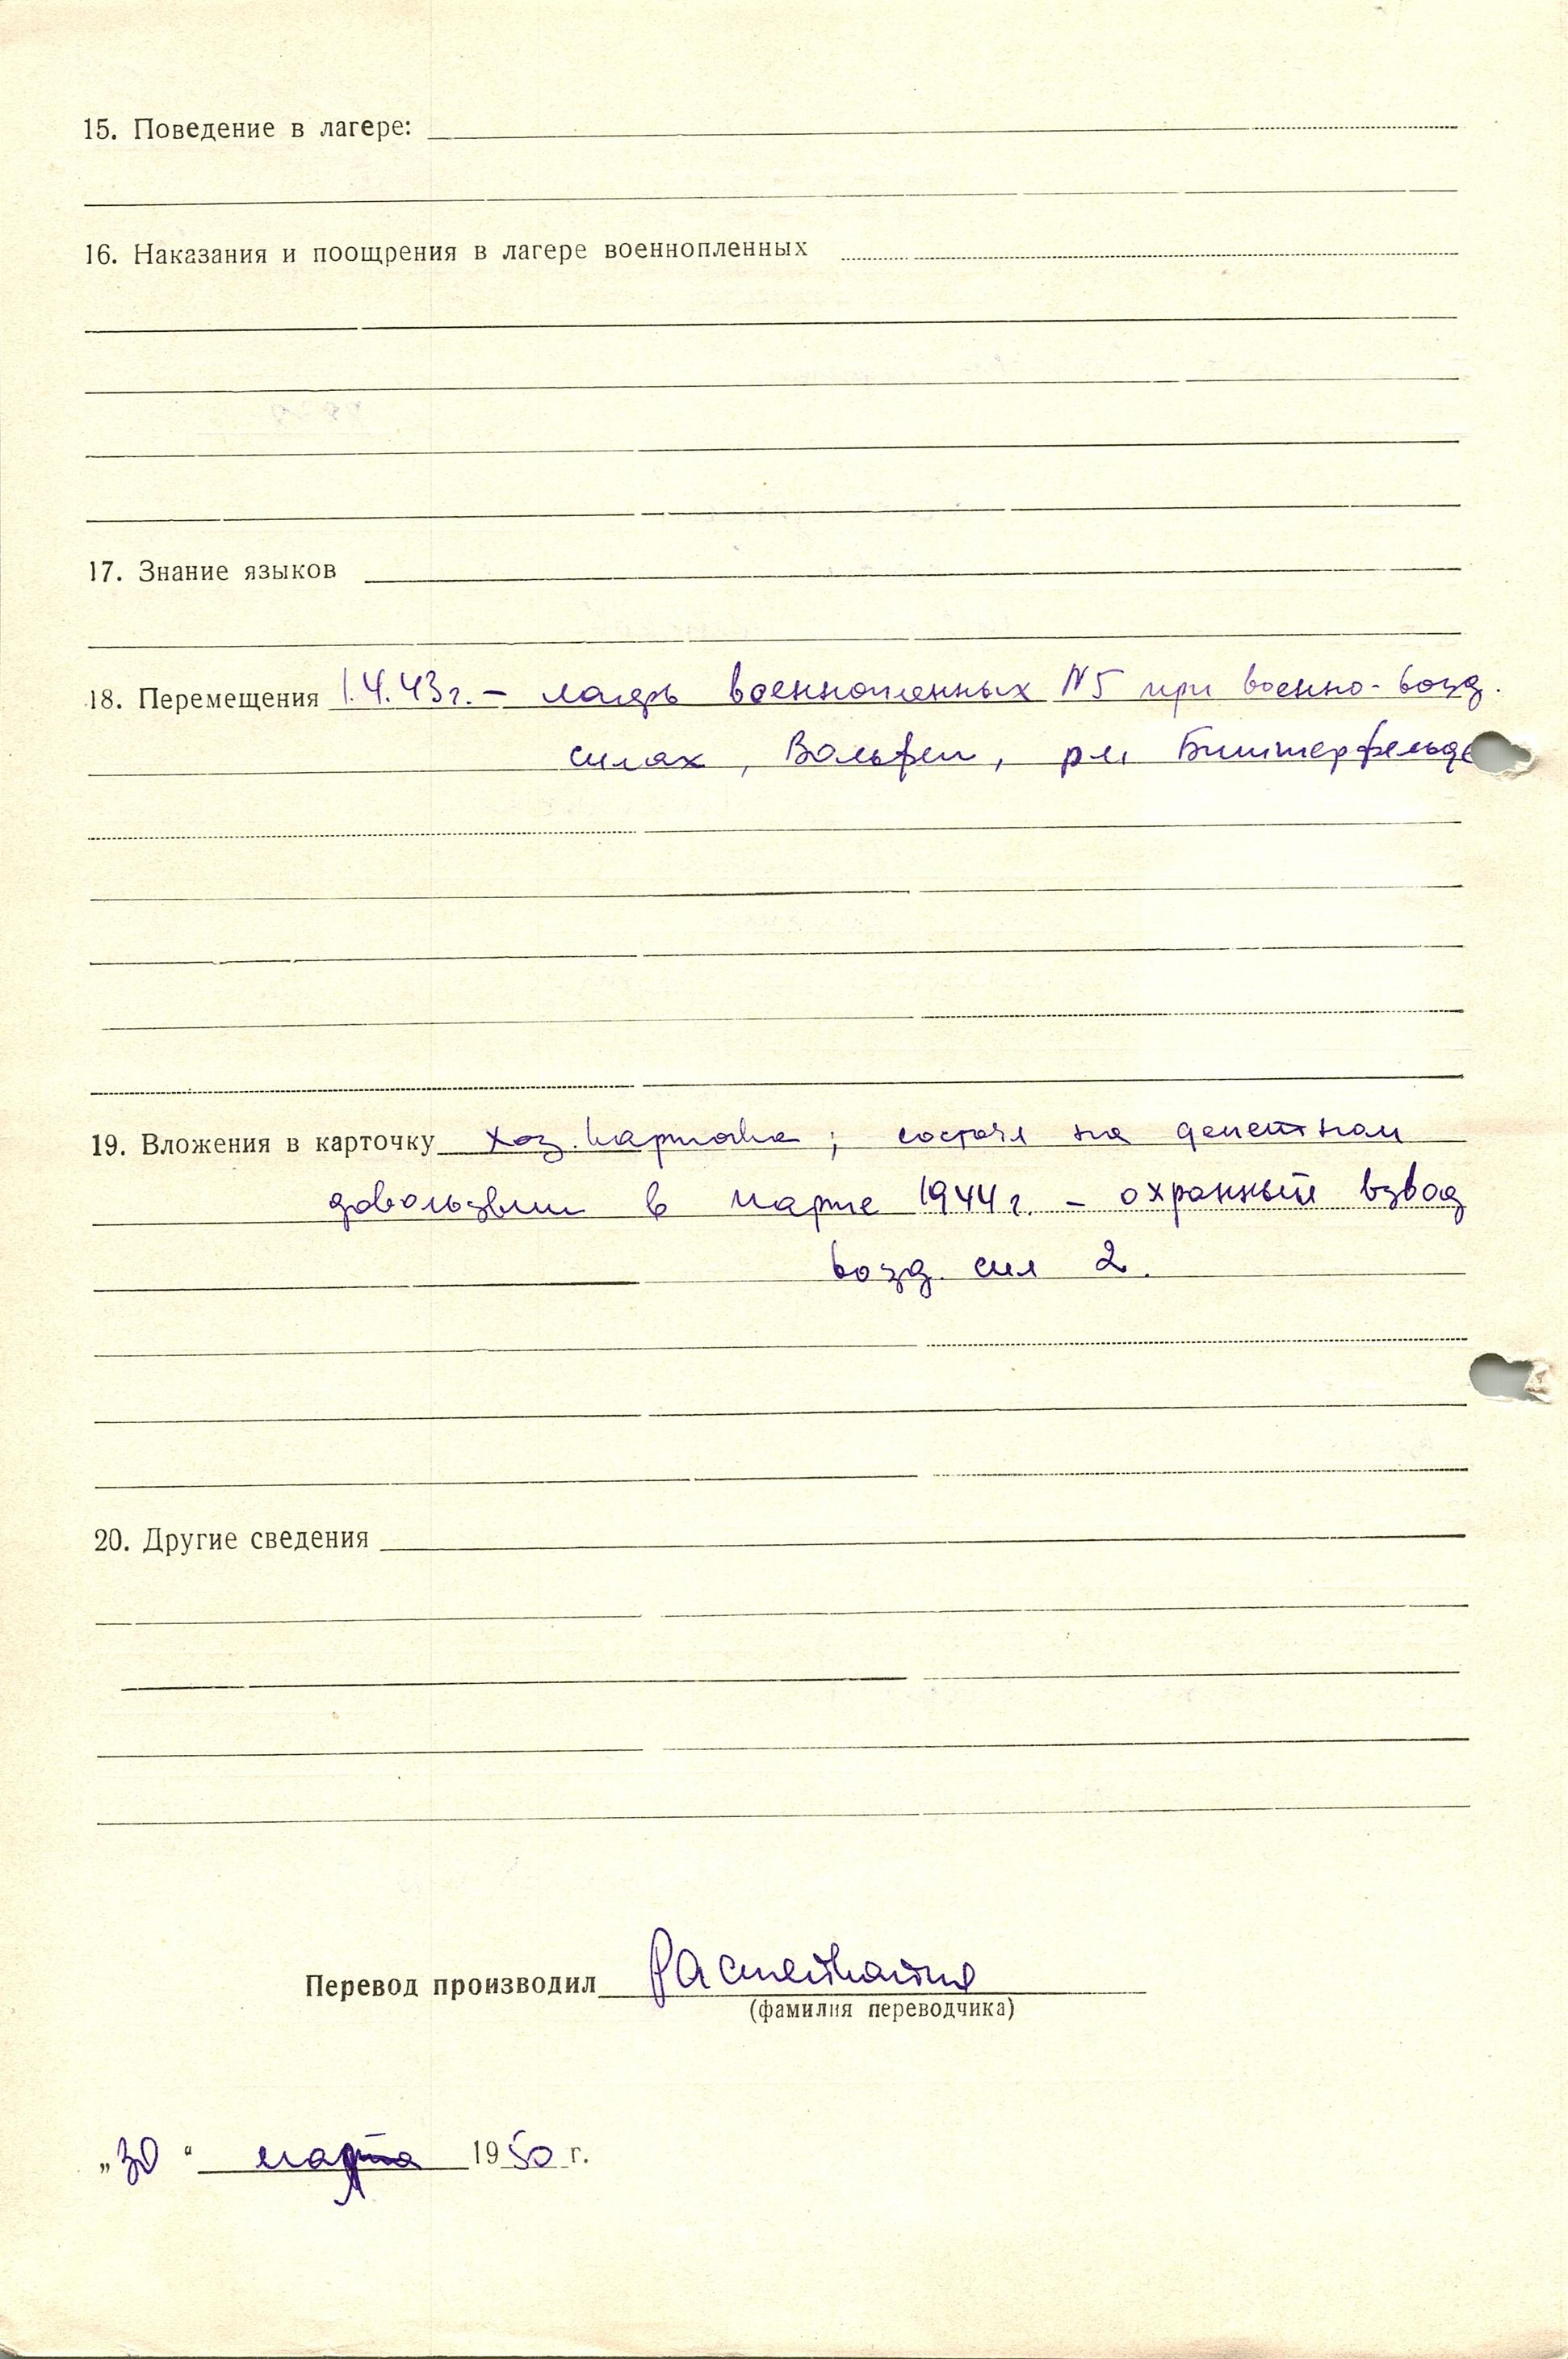 15. Поведение в лагере:
16. Наказания и поощрения в лагере военнопленных
17. Знание языков
18. Перемещения 1.4.43г. – лагерь военнопленных №5 при военно-возд.
силах, Вольфен, Биттерфельд
19. Вложения в карточку хоз. карточка; состоял на денежном
довольствии в марте 1944 г. – охранный взвод
возд. сил 2.
20. Другие сведения
Перевод производил
(фамилия переводчика)
„30“ марта 1950 г.